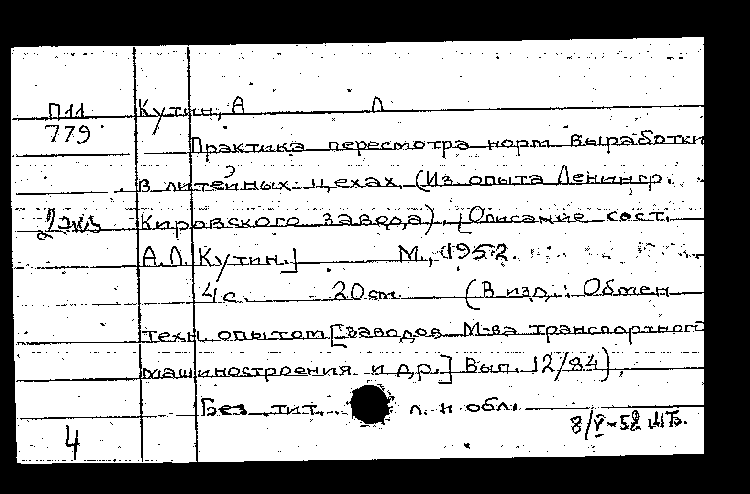 П11 Кутин, А Л
779
Практика пересмотра норм выработки
в литейных цехах. (Из опыта Ленингр.
2 экз Кировского завода). [Описание сост.
А.Л. Кутин.] М., 1952.
4 с. 20 см. (В изд.: Обмен
техн. опытом [заводов М-ва транспортного
машиностроения и др.] Вып. 12/84),
Без тит. л. и обл.
4 8/V-52 МБ.